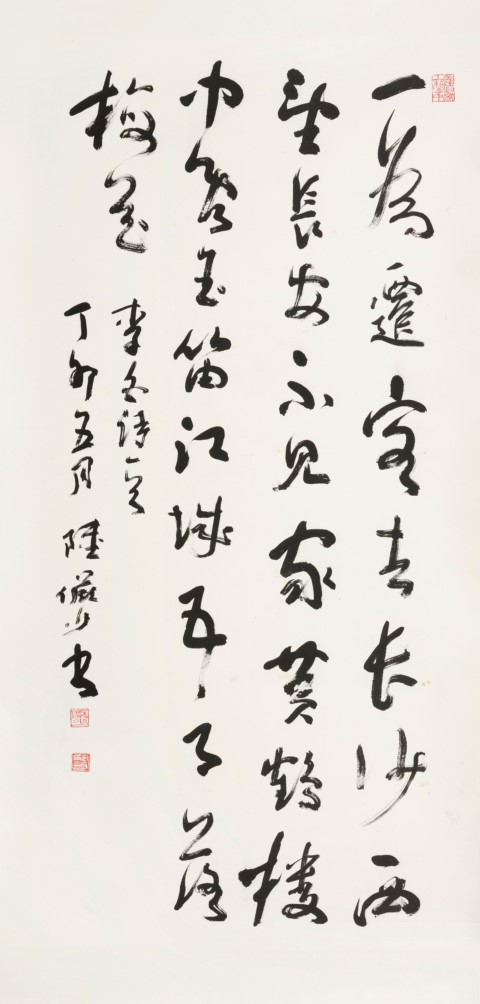 一為遷客去长沙西
望長安不見家黄鶴樓
中吹玉笛江城五月落
梅花
李白詩一首
丁卯五月 陸儼少書